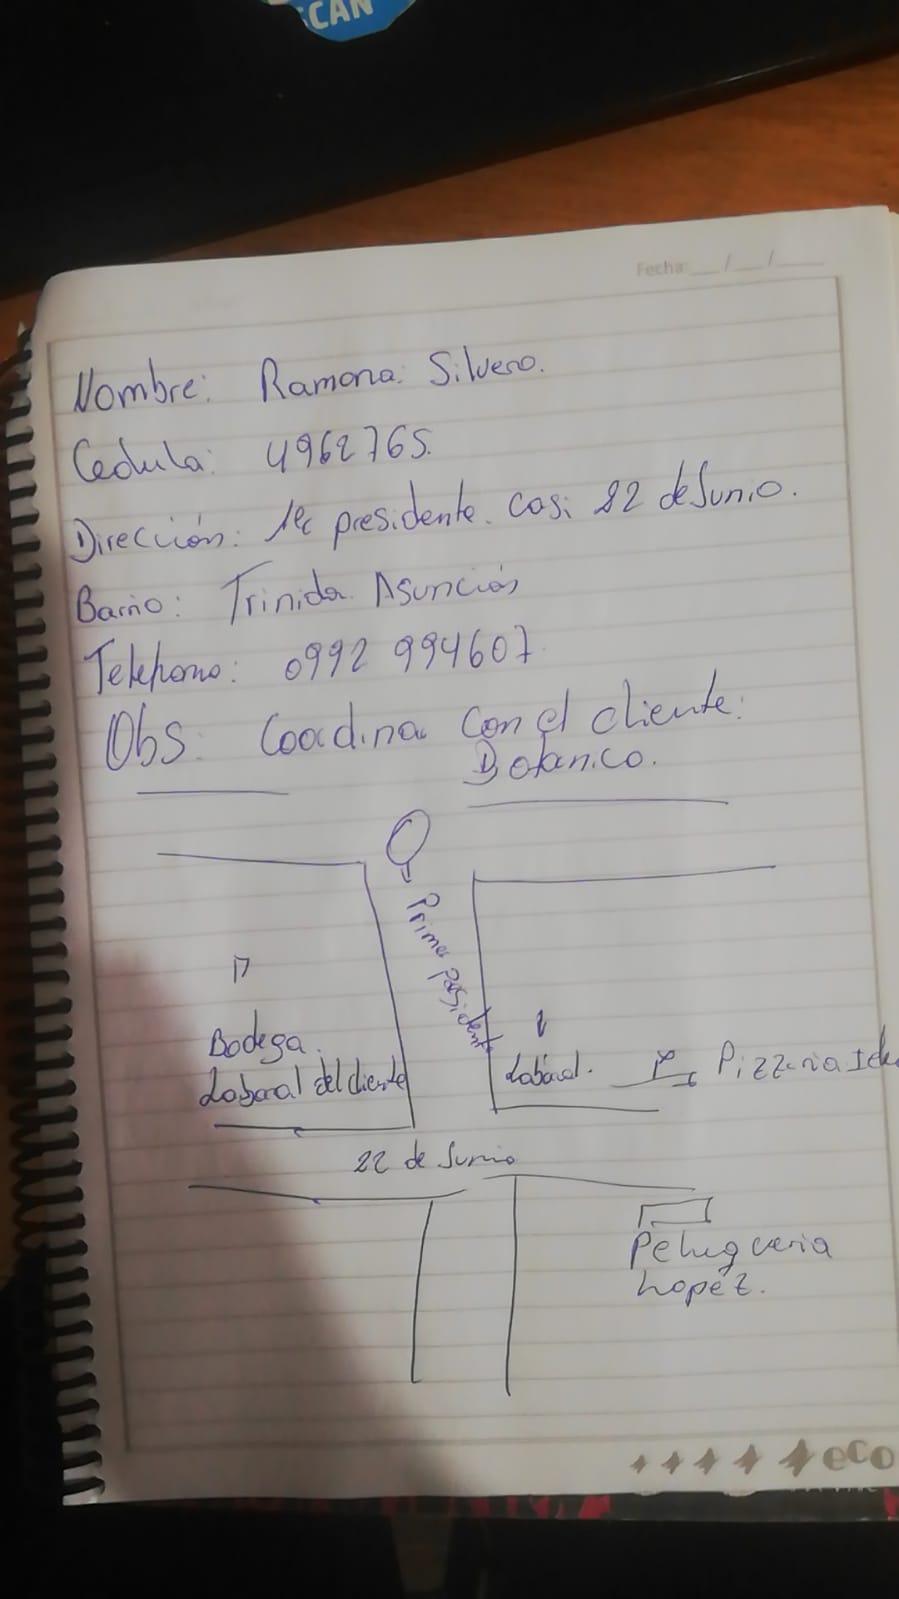 SCAN
Fecha: __/__/____
Nombre: Ramona Silvero.
Cedula: 4962765.
Dirección: 1er presidente. casi 22 de Junio.
Barrio: Trinida. Asunción
Telefono: 0992 994607
Obs: Coodinar Con el cliente.
Botanico.
Primer presidente
Bodega.
Laboral del cliente
Laboral.
Pizzeria
22 de Junio
Pelugueria
Lopez.
eco